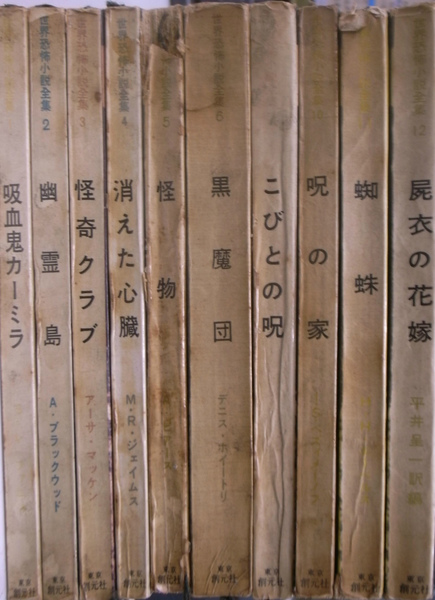 吸血鬼カーミラ
世界恐怖小説全集 2
幽霊島
A・ブラックウッド
東京
創元社
世界恐怖小説全集 3
怪奇クラブ
アーサ・マッケン
東京
創元社
世界恐怖小説全集 4
消えた心臓
M・R・ジェイムス
東京
創元社
5
怪物
東京
創元社
世界恐怖小説全集 6
黒魔団
デニス・ホイートリ
東京
創元社
こびとの呪
東京
創元社
呪の家
東京
創元社
蜘蛛
東京
創元社
世界恐怖小説全集 12
屍衣の花嫁
平井呈一訳編
東京
創元社